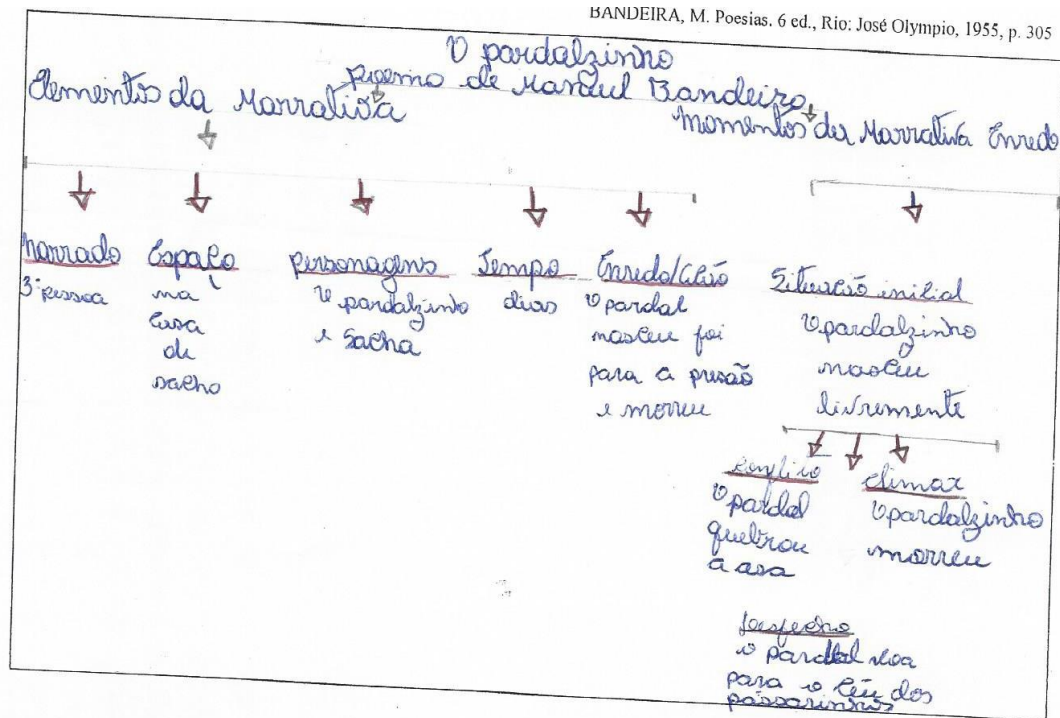 BANDEIRA, M. Poesias. 6 ed., Rio: José Olympio, 1955, p. 305
O pardalzinho
poema de Manuel Bandeira
Elementos da Narrativa
Momentos da Narrativa Enredo
Narrado
3ª pessoa
Espaço
na
casa
de
sacho
personagens
O pardalzinho
e Sacha
Tempo
dias
Enredo/Ação
O pardal
nasceu foi
para a prisão
e morreu
Situação inicial
O pardalzinho
nasceu
livremente
conflito
O pardal
quebrou
a asa
climax
O pardalzinho
morreu
Desfecho
o pardal voa
para o céu dos
passarinhos